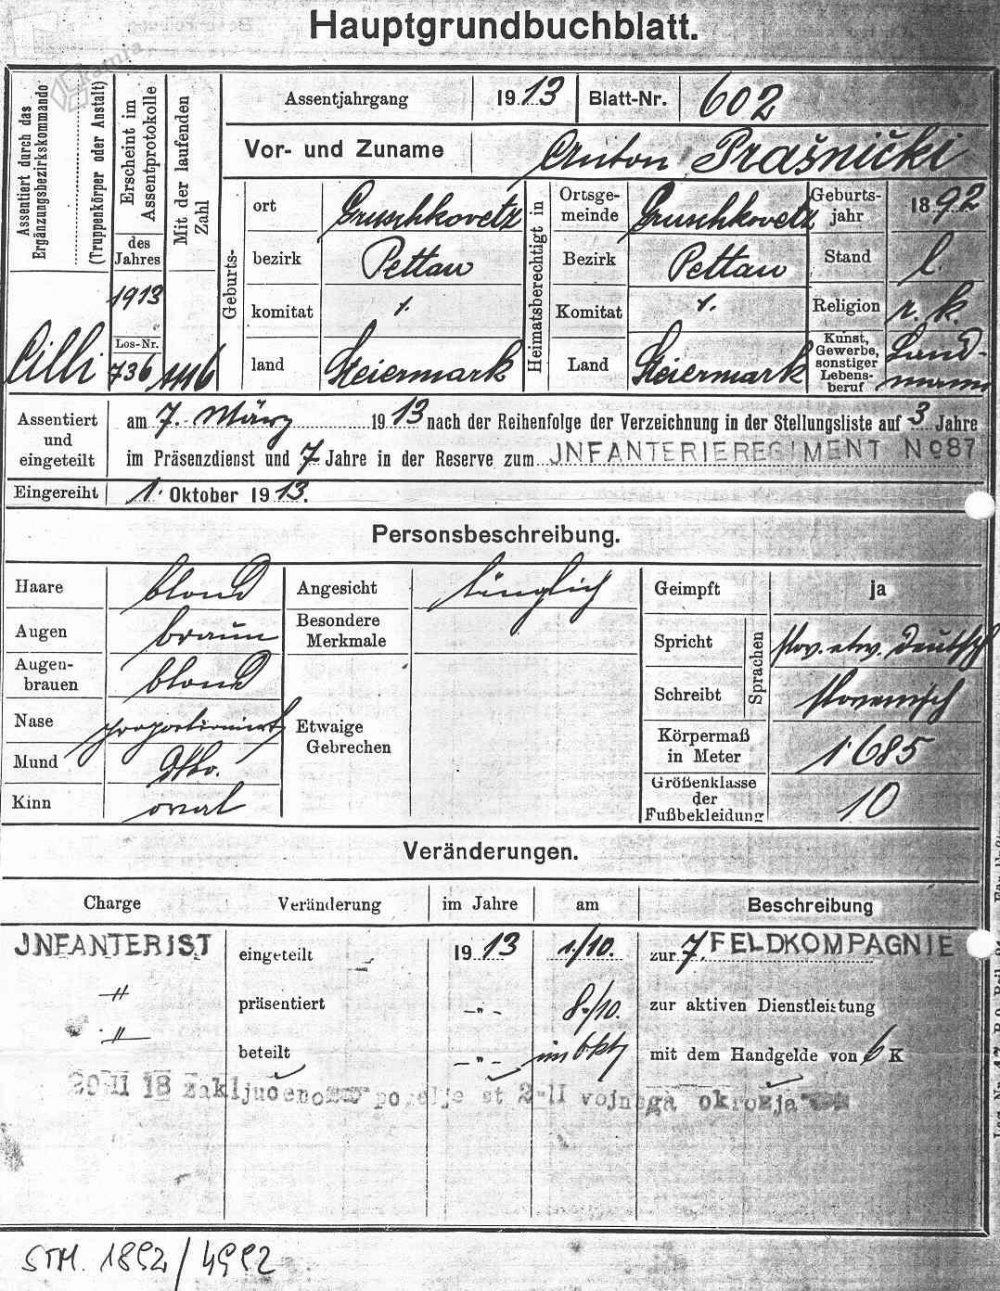 Hauptgrundbuchblatt.
Assentiert durch das
Ergänzungsbezirkskommando
(Truppenkörper oder Anstalt)
Cilli
Erscheint im
Assentprotokolle
des
Jahres
1913
Los-Nr.
736
Mit der laufenden
Zahl
Assentjahrgang 1913 Blatt-Nr. 602
Vor- und Zuname Anton Prašnički
Geburts-
ort Gruschkovetz
bezirk Pettau
komitat
land Steiermark
Heimatsberechtigt in
Ortsge-
meinde Gruschkovetz
Bezirk Pettau
Komitat
Land Steiermark
Geburts-
jahr 1892
Stand l.
Religion r. k.
Kunst,
Gewerbe,
sonstiger
Lebens-
beruf Land-
mann
Assentiert
und
eingeteilt
am 7. März 1913 nach der Reihenfolge der Verzeichnung in der Stellungsliste auf 3 Jahre
im Präsenzdienst und 7 Jahre in der Reserve zum JNFANTERIEREGIMENT No87
Eingereiht 1. Oktober 1913.
Personsbeschreibung.
Haare blond
Augen braun
Augen-
brauen blond
Nase proportioniert
Mund dtto.
Kinn oval
Angesicht länglich
Besondere
Merkmale
Etwaige
Gebrechen
Geimpft ja
Sprachen
Spricht slov. etw. deutsch
Schreibt slovenisch
Körpermaß
in Meter 1·685
Größenklasse
der
Fußbekleidung 10
Veränderungen.
Charge Veränderung im Jahre am Beschreibung
JNFANTERIST eingeteilt 1913 1/10. zur 7. FELDKOMPAGNIE
-"- präsentiert -"- 8/10. zur aktiven Dienstleistung
-"- beteilt -"- im Okt mit dem Handgelde von 6 K
20 II 18 zaključeno povelje st 2-II vojnega okrozja
STM. 1892/4992